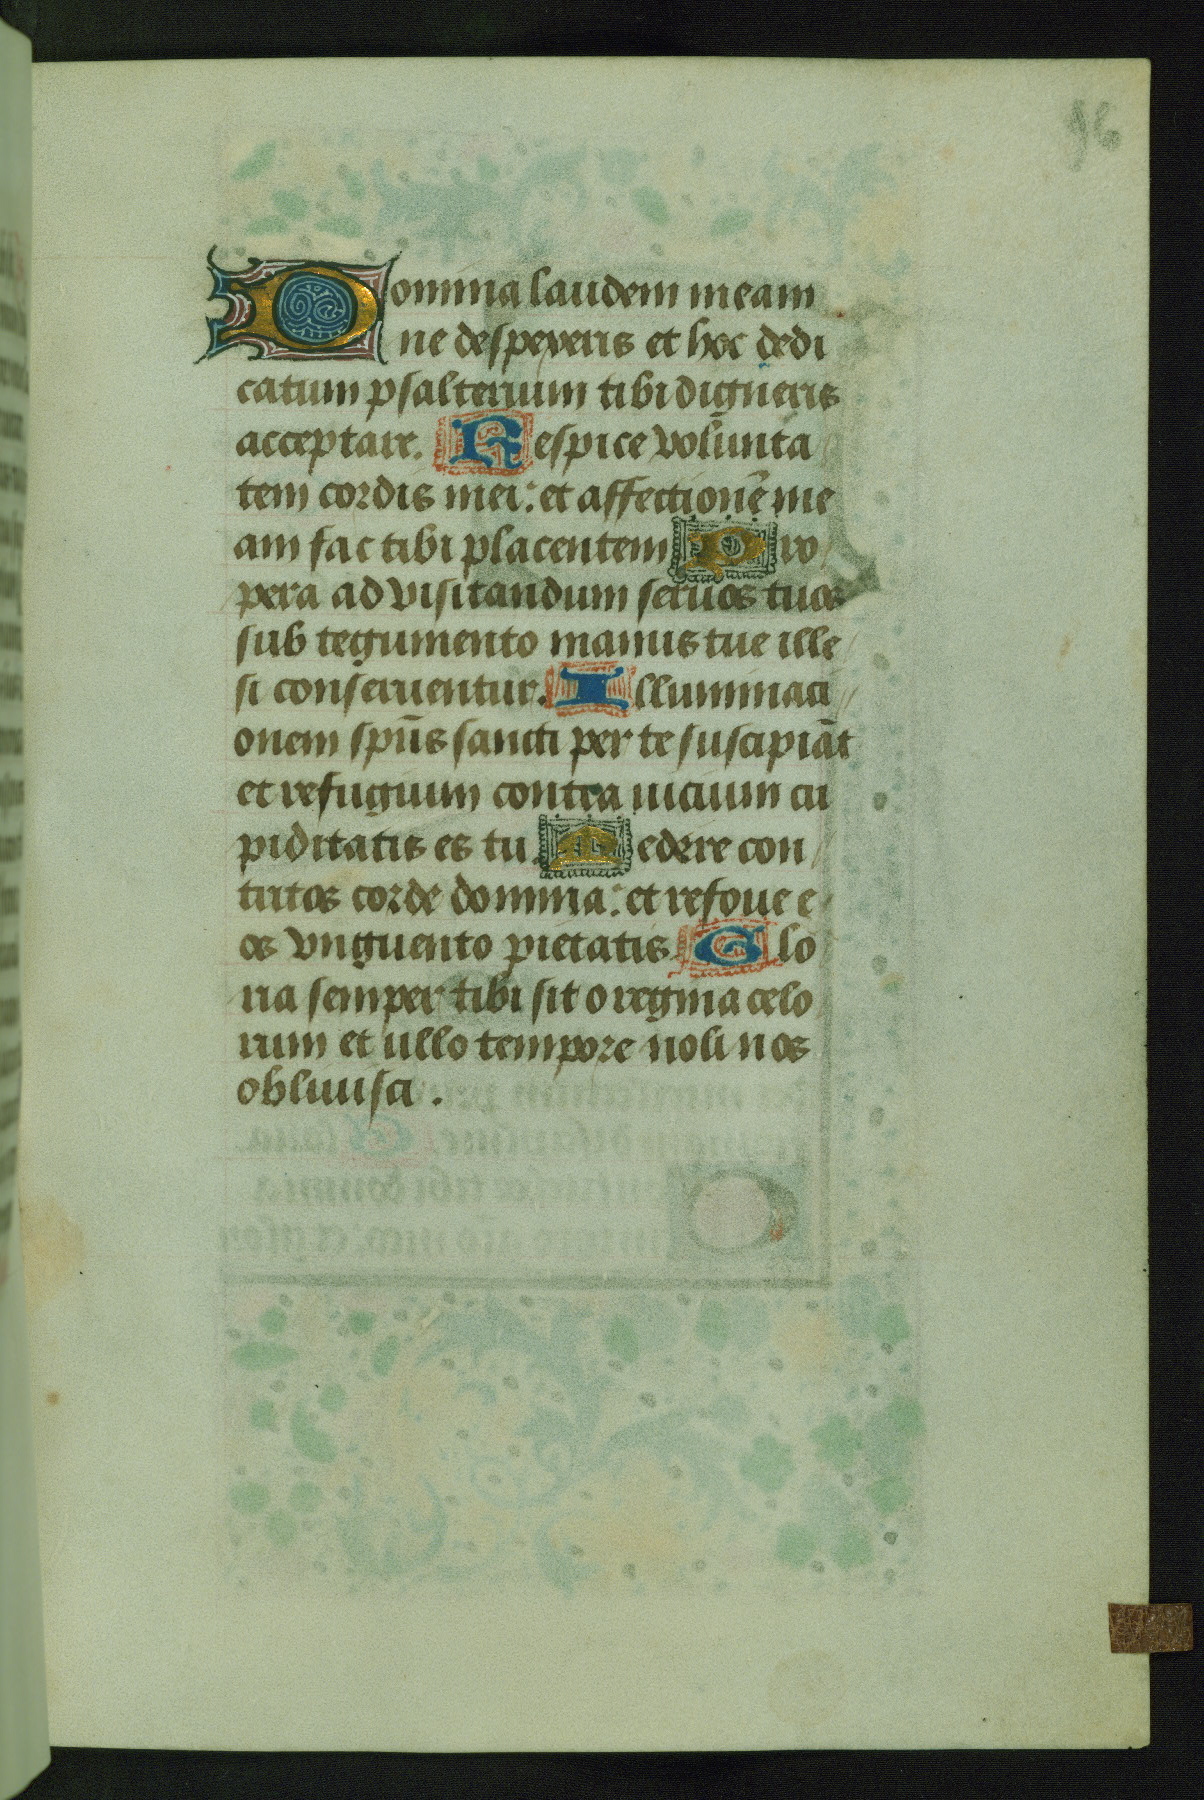 96
Domina laudem meam
ne despexeris et hoc dedi
catum psalterium tibi digneris
acceptare. Respice volunta
tem cordis mei: et affectionē me
am fac tibi placentem Pro
pera ad visitandum seruos tuos
sub tegumento manus tue ille
si conseruentur. Illuminaci
onem spūs sancti per te suscipiāt
et refugium contra uicium cu
piditatis es tu. Medere con
tritos corde domina: et refoue e
os vnguento pietatis Glo
ria semper tibi sit o regina celo
rum et ullo tempore noli nos
obliuisci.